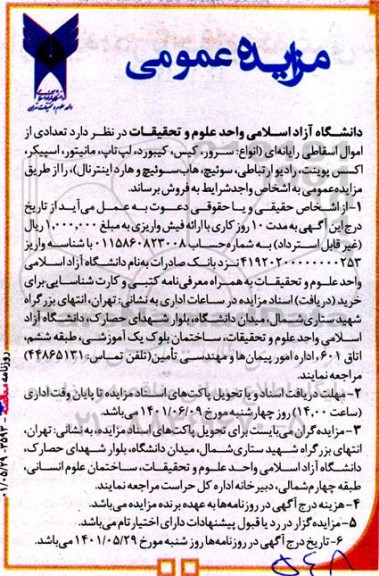 مزایده عمومی
دانشگاه آزاد اسلامی واحد علوم و تحقیقات در نظر دارد تعدادی از
اموال اسقاطی رایانه‌ای (انواع: سرور، کیس، کیبورد، لپ‌تاپ، مانیتور، اسپیکر،
اکسس پوینت، رادیو ارتباطی، سوئیچ، هاب‌سوئیچ و هارد اینترنال)، را از طریق
مزایده‌عمومی به اشخاص واجدشرایط به فروش برساند.
۱- از اشخاص حقیقی و یا حقوقی دعوت به عمل می‌آید از تاریخ
درج این آگهی به مدت ۱۰ روز کاری با ارائه فیش واریزی به مبلغ ۱,۰۰۰,۰۰۰ ریال
(غیر قابل استرداد) به شماره حساب ۰۱۱۵۸۶۰۸۲۳۰۰۸ با شناسه واریز
۴۱۹۲۰۲۰۰۰۰۰۰۰۲۵۳ نزد بانک صادرات به‌نام دانشگاه آزاد اسلامی
واحد علوم و تحقیقات به همراه معرفی‌نامه کتبی و کارت شناسایی برای
خرید (دریافت) اسناد مزایده در ساعات اداری به نشانی: تهران، انتهای بزرگراه
شهید ستاری‌شمال، میدان دانشگاه، بلوار شهدای حصارک، دانشگاه آزاد
اسلامی واحد علوم و تحقیقات، ساختمان بلوک یک آموزشی، طبقه ششم،
اتاق ۶۰۱، اداره امور پیمان‌ها و مهندسی تأمین (تلفن تماس: ۴۴۸۶۵۱۳۱)
مراجعه نمایند.
۲- مهلت دریافت اسناد و یا تحویل پاکت‌های اسناد مزایده تا پایان وقت اداری
(ساعت ۱۴,۰۰) روز چهارشنبه مورخ ۱۴۰۱/۰۶/۰۹ می‌باشد.
۳- مزایده‌گران می‌بایست برای تحویل پاکت‌های اسناد مزایده، به نشانی: تهران،
انتهای بزرگراه شهید ستاری‌شمال، میدان دانشگاه، بلوار شهدای حصارک،
دانشگاه آزاد اسلامی واحد علوم و تحقیقات، ساختمان علوم انسانی،
طبقه چهارم‌شمالی، دبیرخانه اداره کل حراست مراجعه نمایند.
۴- هزینه درج آگهی در روزنامه‌ها به عهده برنده مزایده می‌باشد.
۵- مزایده‌گزار در رد یا قبول پیشنهادات دارای اختیار تام می‌باشد.
۶- تاریخ درج آگهی در روزنامه‌ها روز شنبه مورخ ۱۴۰۱/۰۵/۲۹ می‌باشد.